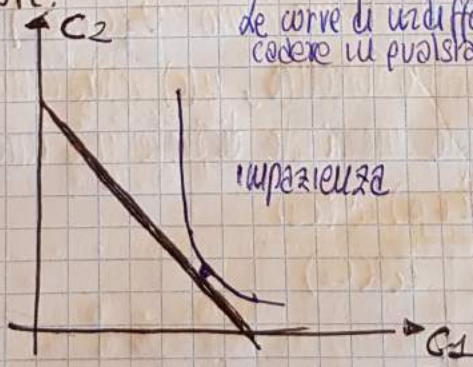 C2
le curve di indiff
cadere in qualsia
impazienza
C1